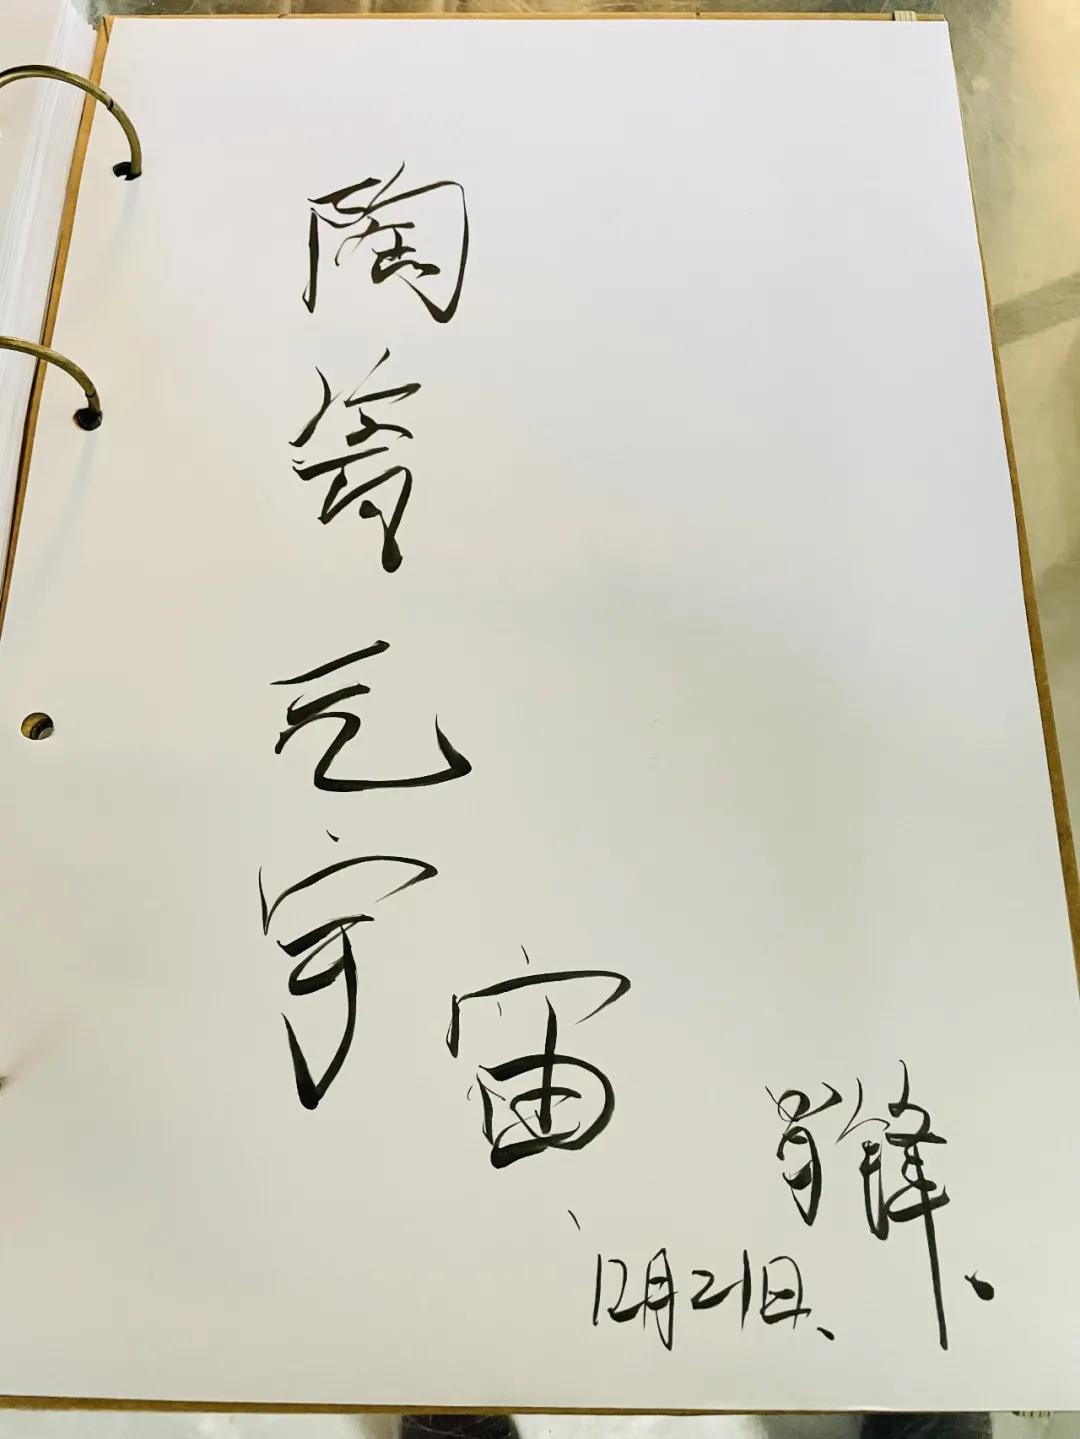 陶瓷元宇宙
肖锋
12月21日